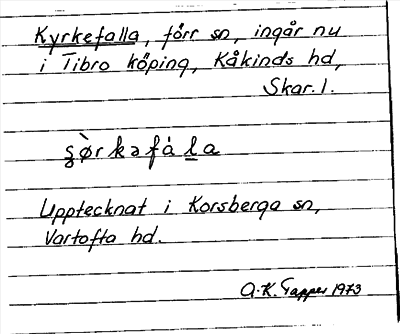 Kyrkefalla, förr sn, ingår nu
i Tibro köping, Kåkinds hd,
Skar. l.
Upptecknat i Korsberga sn,
Vartofta hd.
A.-K. Tapper 1973